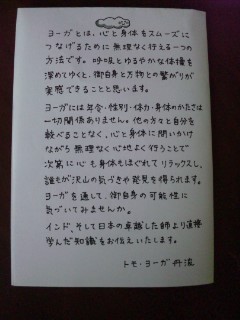 ヨーガとは、心と身体をスムーズに
つなげるために無理なく行える一つの
方法です。呼吸とゆるやかな体操を
深めてゆくと、御自身と万物との繋がりが
実感できることと思います。
ヨーガには年令・性別・体力・身体のかたさは
一切関係ありません。他の方々と自分を
較べることなく、心と身体に問いかけな
がら無理なく心地よく行うことで
次第に心も身体もほぐれてリラックスし、
誰もが沢山の気づきや発見を得られます。
ヨーガを通して、御自身の可能性に
気づいてみませんか。
インド、そして日本の卓越した師より直接
学んだ知識をお伝えいたします。
トモ・ヨーガ丹波